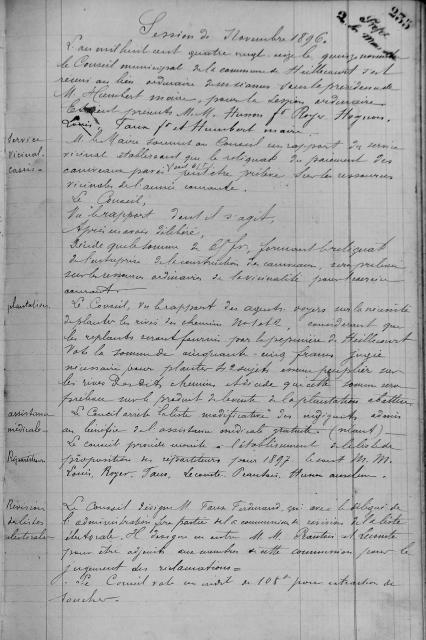 235
Session de Novembre 1896.
L'an mil huit cent quatre vingt seize le quinze novembre
le Conseil municipal de la commune de Heillecourt s'est
réuni au lieu ordinaire de ses séances sous la présidence de
M. Humbert maire, pour la session ordinaire
Etaient présents M.M. Husson f. Royer, Hoquon,
Louis, Faux f. et Humbert maire.
Service vicinal
M. le Maire soumet au Conseil un rapport du service
vicinal établissant que le reliquat du paiement des
caniveaux pavés peut être prélevé sur les ressources
vicinales de l'année courante.
Le Conseil,
Vu le rapport dont il s'agit,
Après en avoir délibéré,
Décide que la somme de formant le reliquat
de l'entreprise de la construction des caniveaux, sera prélevée
sur les ressources ordinaires de la vicinalité pour l'exercice
courant.
plantations
Le Conseil, Vu le rapport des agents voyers sur la nécessité
de planter les rives des chemins No 1 et 2, considérant que
les replants seront fournis par la pépinière de Heillecourt
Vote la somme de cinquante-cinq francs jugée
nécessaire pour planter 42 sujets essence peuplier sur
les rives desdits chemins et décide que cette somme sera
prélevée sur le produit de la vente de la plantation abattue
assistance médicale
Le Conseil arrête la liste modificative des indigents admis
au bénéfice de l'assistance médicale gratuite (néant)
Répartiteurs
Le conseil procède ensuite à l'établissement de la liste de
proposition des répartiteurs pour 1897 ce sont M.M.
Louis, Royer, Faux, Lecomte, Husson
Révision de listes électorales
Le Conseil désigne M. Faux Ferdinand, qui avec le délégué de
l'administration fera partie de la commission de révision de la liste
électorale. Il désigne en outre M.M. et Lecomte
pour être adjoints aux membres de cette commission pour le
jugement des réclamations =
Le Conseil vote un crédit de 108 pour extraction de
souches.